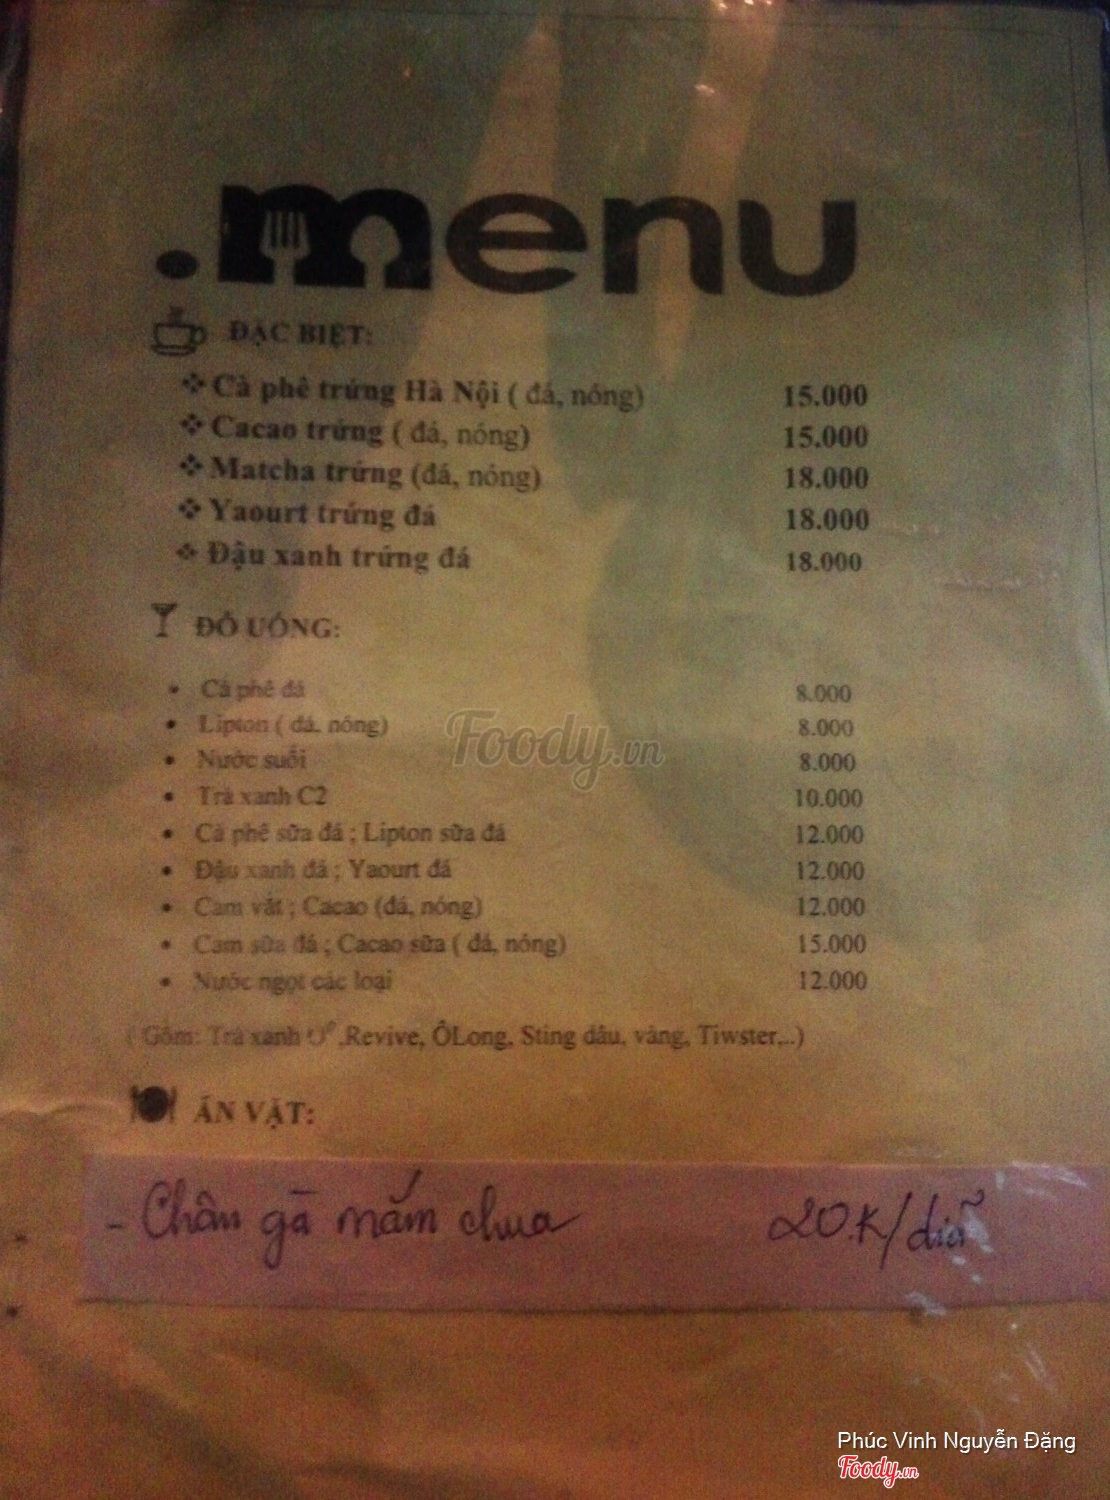 .menu
ĐẶC BIỆT:
Cà phê trứng Hà Nội ( đá, nóng) 15.000
Cacao trứng ( đá, nóng) 15.000
Matcha trứng (đá, nóng) 18.000
Yaourt trứng đá 18.000
Đậu xanh trứng đá 18.000
ĐỒ UỐNG:
Cà phê đá 8.000
Lipton ( đá, nóng) 8.000
Nước suối 8.000
Trà xanh C2 10.000
Foody.vn
Cà phê sữa đá ; Lipton sữa đá 12.000
Đậu xanh đá ; Yaourt đá 12.000
Cam vắt ; Cacao (đá, nóng) 12.000
Cam sữa đá ; Cacao sữa ( đá, nóng) 15.000
Nước ngọt các loại 12.000
( Gồm: Trà xanh O°,Revive, ÔLong, Sting dâu, vàng, Tiwster,..)
ĂN VẶT:
- Chân gà mắm chua 20.K/dĩa
Phúc Vinh Nguyễn Đặng
Foody.vn